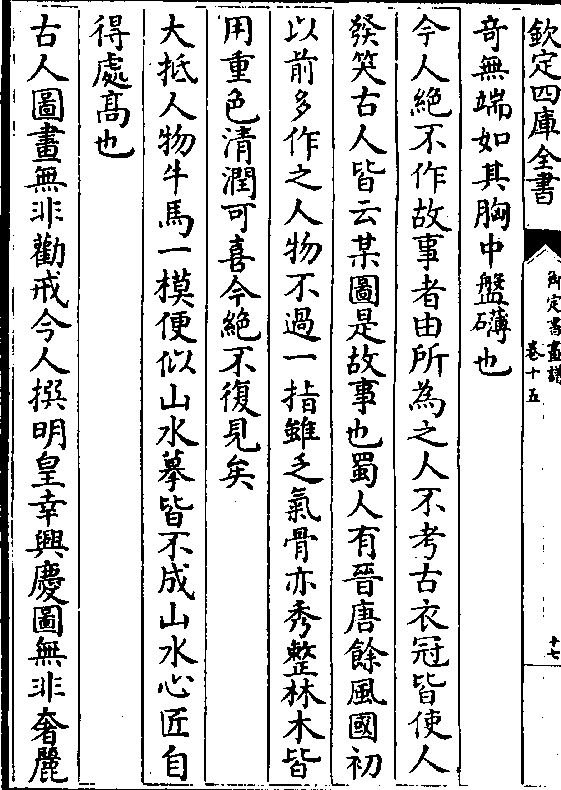 欽定四庫全書
御定書畫譜
卷十五
十七
竒無端如其胸中盤礴也
今人絶不作故事者由所為之人不考古衣冠皆使人
發笑古人皆云某圖是故事也蜀人有晉唐餘風國初
以前多作之人物不過一指雖乏氣骨亦秀整林木皆
用重色清潤可喜今絶不復見矣
大抵人物牛馬一模便似山水摹皆不成山水心匠自
得處髙也
古人圖畫無非勸戒今人撰明皇幸興慶圖無非奢麗